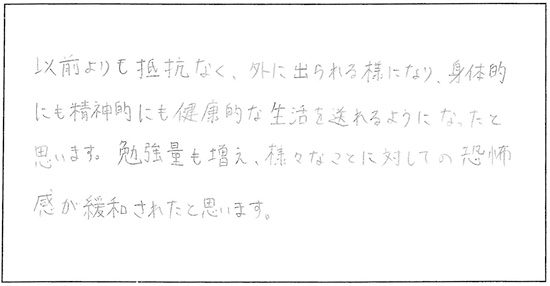 以前よりも抵抗なく、外に出られる様になり、身体的
にも精神的にも健康的な生活を送れるようになったと
思います。勉強量も増え、様々なことに対しての恐怖
感が緩和されたと思います。